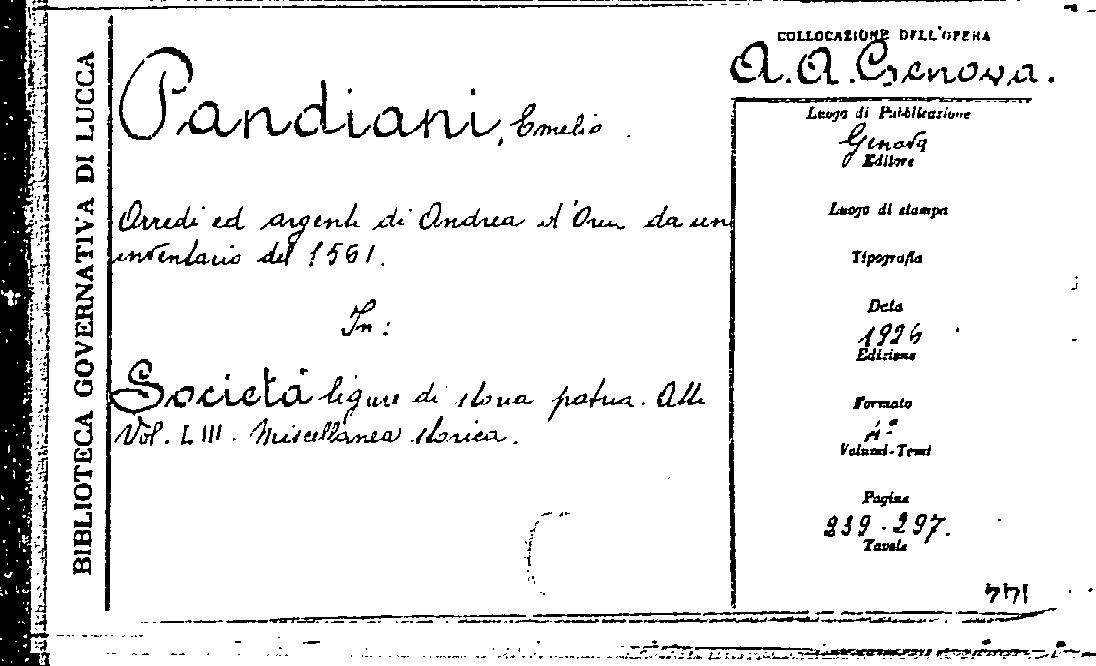 BIBLIOTECA GOVERNATIVA DI LUCCA
Pandiani, Emelio.
Arredi ed argenti di Andrea d'Oria da un
inventario del 1561.
In:
Società ligure di storia patria. Atti
Vol. LIII. Miscellanea storica.
COLLOCAZIONE DELL'OPERA
A.A. Genova.
Luogo di Pubblicazione
Genova
Editore
Luogo di stampa
Tipografia
Data
1926
Edizione
Formato
4º
Volumi-Tomi
Pagine
239-297.
Tavole